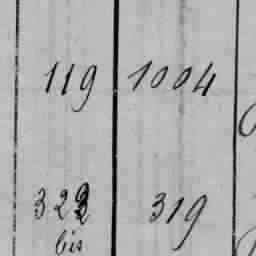 119 1004
322 319
bis